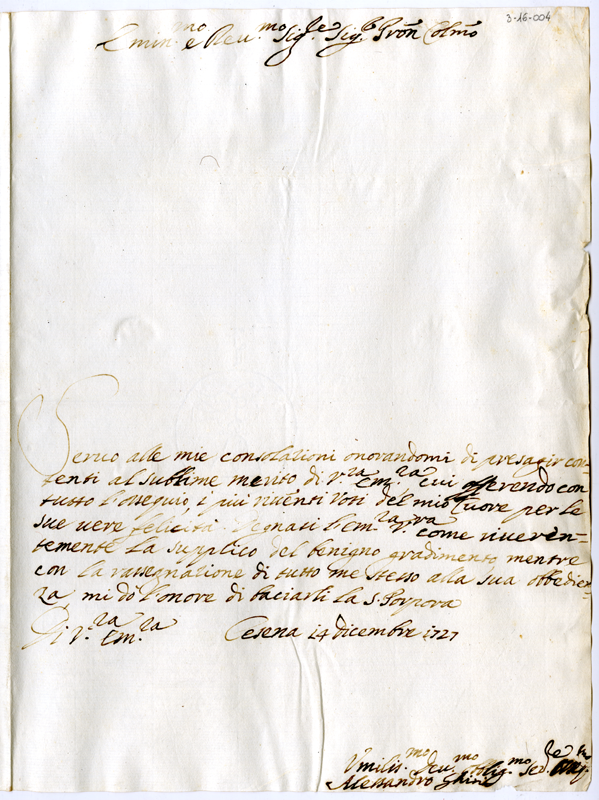 3-16-004
Emin.mo e Reu.mo Sig.re Sig.r Pron Colmo
Seruo alle mie consolationi onorandomi di presagir con-
tenti al sublime merito di V.ra Em.za cui offerendo con
tutto l'ossequio, i più riuenti Voti del mio Cuore per le
sue uere felicità. Degnati l'Em.za V.ra come riueren-
temente La supplico del benigno gradimento mentre
con la rassegnatione di tutto me stesso alla sua obbedien-
za mi dò l'onore di baciarli la S. Porpora
Di V.ra Em.za Cesena 14 dicembre 1727
Vmiliss.mo Deu.mo Oblig.mo Ser.re
Alessandro Ghini